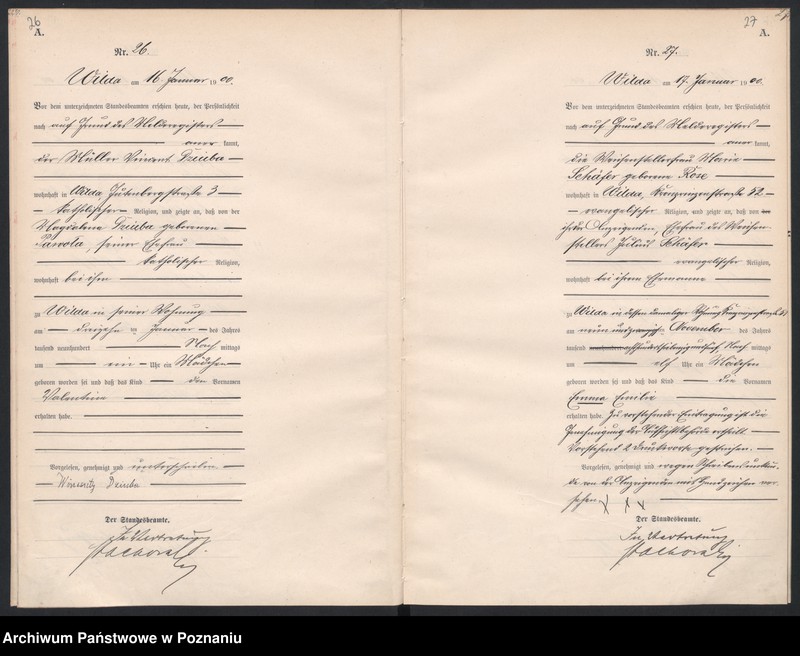 26
A.
Nr. 26.
Wilda am 16. Januar 1900.
Vor dem unterzeichneten Standesbeamten erschien heute, der Persönlichkeit
nach auf Grund des Melderegisters
aner kannt,
der Müller Vincent Dziuba
wohnhaft in Wilda, Gutenbergstraße 3
katholischer Religion, und zeigte an, daß von der
Magdalena Dziuba geborenen
seiner Ehefrau
katholischer Religion,
wohnhaft bei ihm
zu Wilda in seiner Wohnung
am Januar des Jahres
tausend neunhundert Nach mittags
um ein Uhr ein Mädchen
geboren worden sei und daß das Kind den Vornamen
Valentina
erhalten habe.
Vorgelesen, genehmigt und unterschrieben
Dziuba
Der Standesbeamte.
In Vertretung
27
A.
Nr. 27.
Wilda am 17. Januar 1900.
Vor dem unterzeichneten Standesbeamten erschien heute, der Persönlichkeit
nach auf Grund des Melderegisters
aner kannt,
die Weichenstellerfrau Marie
Schäfer geborene Rose
wohnhaft in Wilda, Kronprinzenstraße 82
evangelischer Religion, und zeigte an, daß von
ihr der Anzeigenden, Ehefrau des Weichen-
stellers Julius Schäfer
evangelischer Religion,
wohnhaft bei ihrem Ehemanne
zu Wilda in dessen damaliger Wohnung
am neun November des Jahres
tausend achthundert Nach mittags
um elf Uhr ein Mädchen
geboren worden sei und daß das Kind die Vornamen
Emma Emilie
erhalten habe. Zu vorstehender Eintragung ist die
Genehmigung der Aufsichtsbehörde ertheilt.
Vorstehend 2 Druckworte gestrichen.
Vorgelesen, genehmigt und wegen Schreibensunkun-
de von der Anzeigenden mit Handzeichen ver
sehen X X X
Der Standesbeamte.
In Vertretung
Archiwum Państwowe w Poznaniu